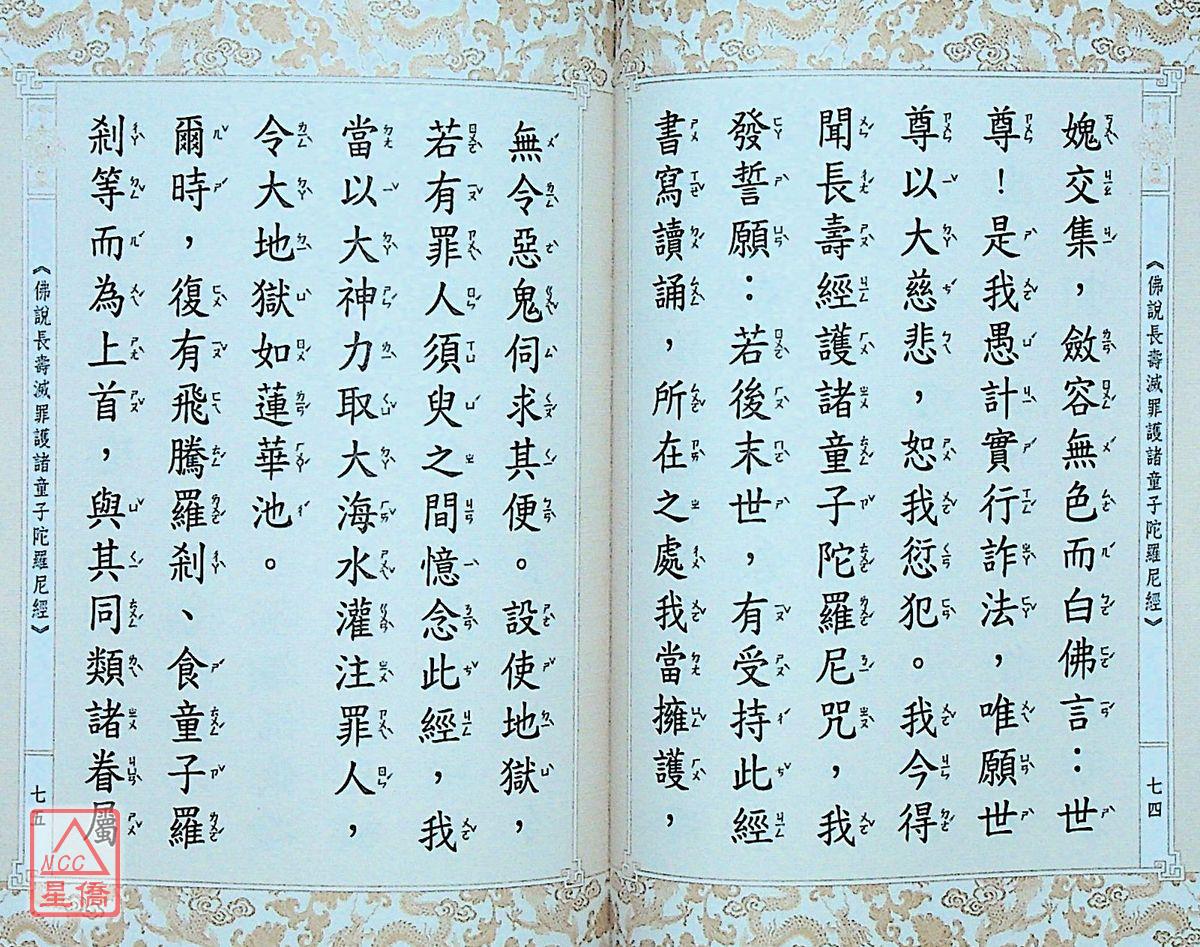 《佛說長壽滅罪護諸童子陀羅尼經》
七四
媿交集，斂容無色而白佛言：世
尊！是我愚計實行詐法，唯願世
尊以大慈悲，恕我愆犯。我今得
聞長壽經護諸童子陀羅尼咒，我
發誓願：若後末世，有受持此經
書寫讀誦，所在之處我當擁護，
無令惡鬼伺求其便。設使地獄，
若有罪人須臾之間憶念此經，我
當以大神力取大海水灌注罪人，
令大地獄如蓮華池。
爾時，復有飛騰羅剎、食童子羅
剎等而為上首，與其同類諸眷屬
《佛說長壽滅罪護諸童子陀羅尼經》
七五
NCC
星僑